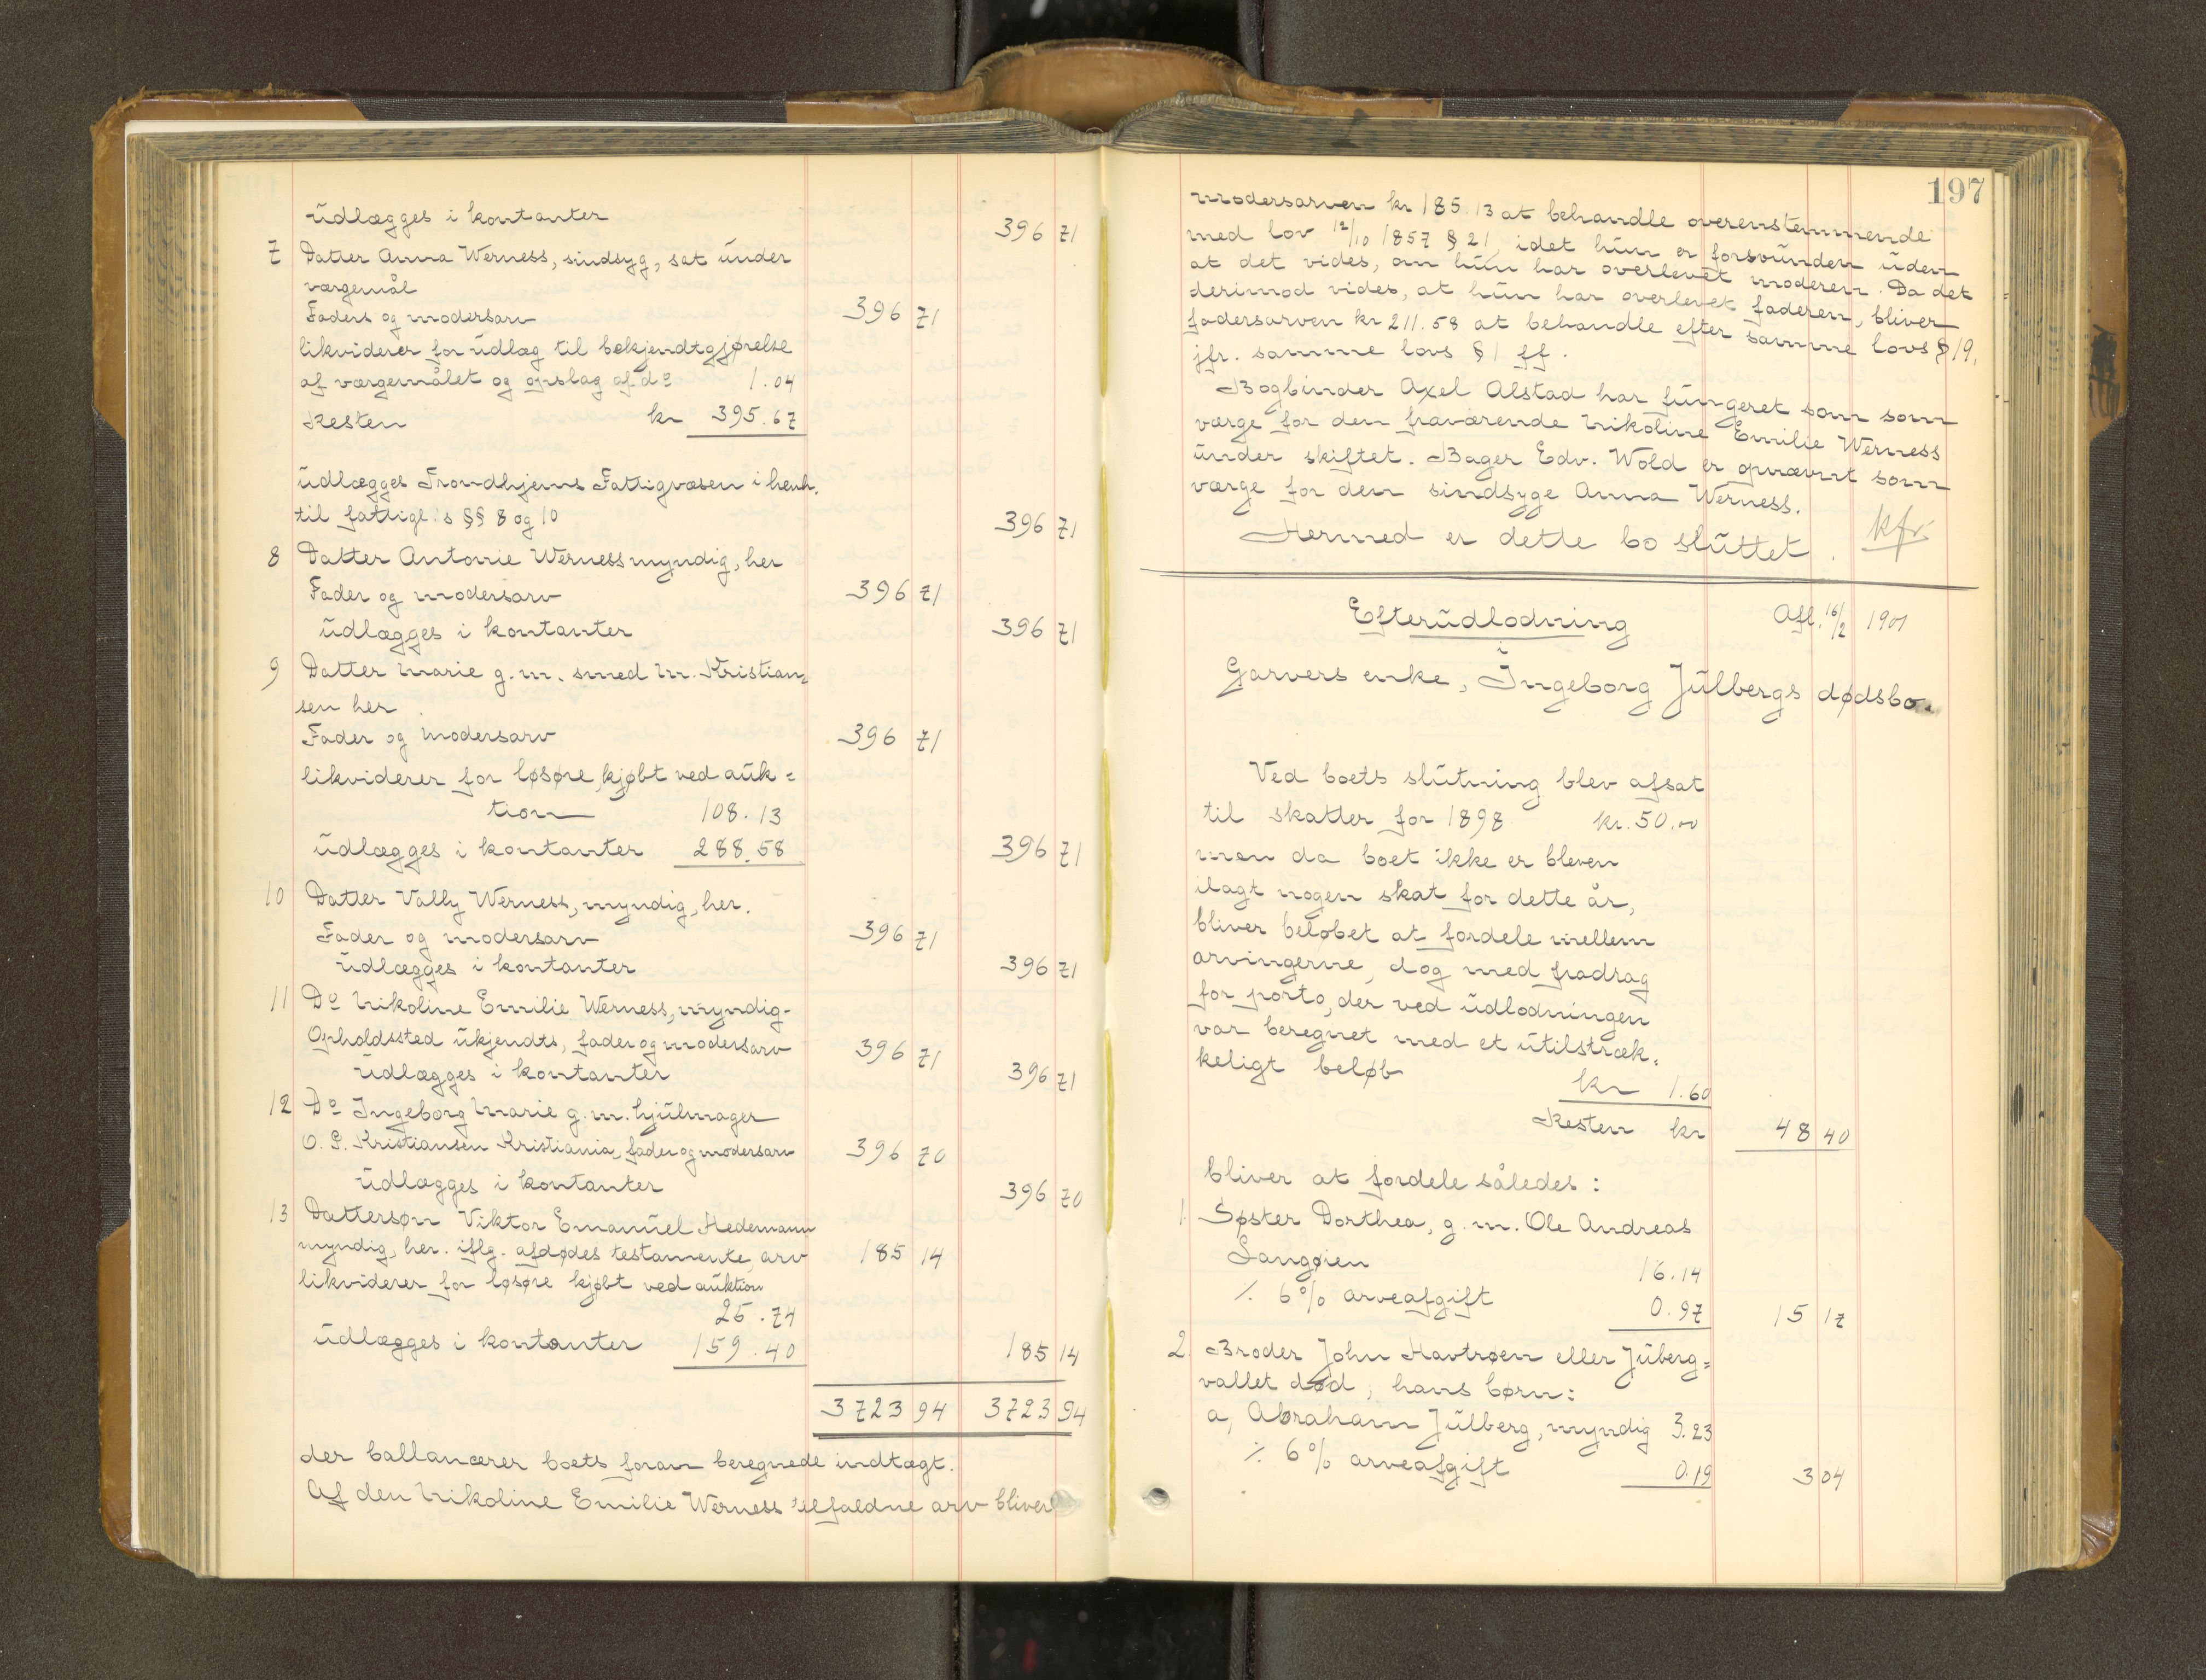 udlægges i kontanter 396 71
7 Datter Anna Werness, sindsyg, sat under
værgemål
Faders og modersarv 396 71
likviderer for udlæg til bekjendtgjørelse
af værgemålet og opslag af do 1.04
Resten kr 395.67
udlægges Trondhjems Fattigvæsen i henh.
til fattigl:s §§ 8 og 10 396 71
8 Datter Antonie Werness myndig, her
Fader og modersarv 396 71
udlægges i kontanter 396 71
9 Datter Marie g. m. smed M. Kristian=
sen her
Fader og modersarv 396 71
likviderer for løsøre, kjøbt ved auk=
tion 108.13
udlægges i kontanter 288.58 396 71
10 Datter Vally Werness, myndig, her.
Fader og modersarv 396 71
udlægges i kontanter 396 71
11 Do Nikoline Emilie Werness, myndig-
Opholdssted ukjendts, fader og modersarv 396 71
udlægges i kontanter 396 71
12 Do Ingeborg Marie g. m. hjulmager
O. P. Kristiansen Kristiania, fader og modersarv 396 70
udlægges i kontanter 396 70
13 Dattersøn Viktor Emanuel Hedemann
myndig, her. iflg. afdødes testamente, arv 185 14
likviderer for løsøre kjøbt ved auktion
25.74
udlægges i kontanter 159.40 185 14
3723 94 3723 94
der ballancerer boets foran beregnede indtægt.
Af den Nikoline Emilie Werness tilfaldne arv bliver
197
modersarven kr 185.13 at behandle overenstemmende
med lov 12/10 1857 § 21, idet hun er forsvunden uden
at det vides, om hun har overlevet moderen. Da det
derimod vides, at hun har overlevet faderen, bliver
fadersarven kr 211.58 at behandle efter samme lovs § 19,
jfr. samme lovs § 1 ff.
Bogbinder Axel Alstad har fungeret som som
værge for den fraværende Nikoline Emilie Werness
under skiftet. Bager Edv. Wold er opnævnt som
værge for den sindsyge Anna Werness.
Hermed er dette bo sluttet. kfr
Efterudlodning Afl. 16/2 1901
i
Garvers enke, Ingeborg Julbergs dødsbo.
Ved boets slutning blev afsat
til skatter for 1898 kr. 50.00
men da boet ikke er bleven
ilagt nogen skat for dette år,
bliver beløbet at fordele mellem
arvingerne, dog med fradrag
for porto, der ved udlodningen
var beregnet med et utilstræk=
keligt beløb
kr 1.60
Resten kr 48 40
bliver at fordele således:
1. Søster Dorthea, g. m. Ole Andreas
Langøien 16.14
⁒ 6% arveafgift 0.97 15 17
2. Broder John Havtrøen eller Juberg=
vallet død, hans børn:
a, Abraham Julberg, myndig 3.23
⁒ 6% arveafgift 0.19 3 04